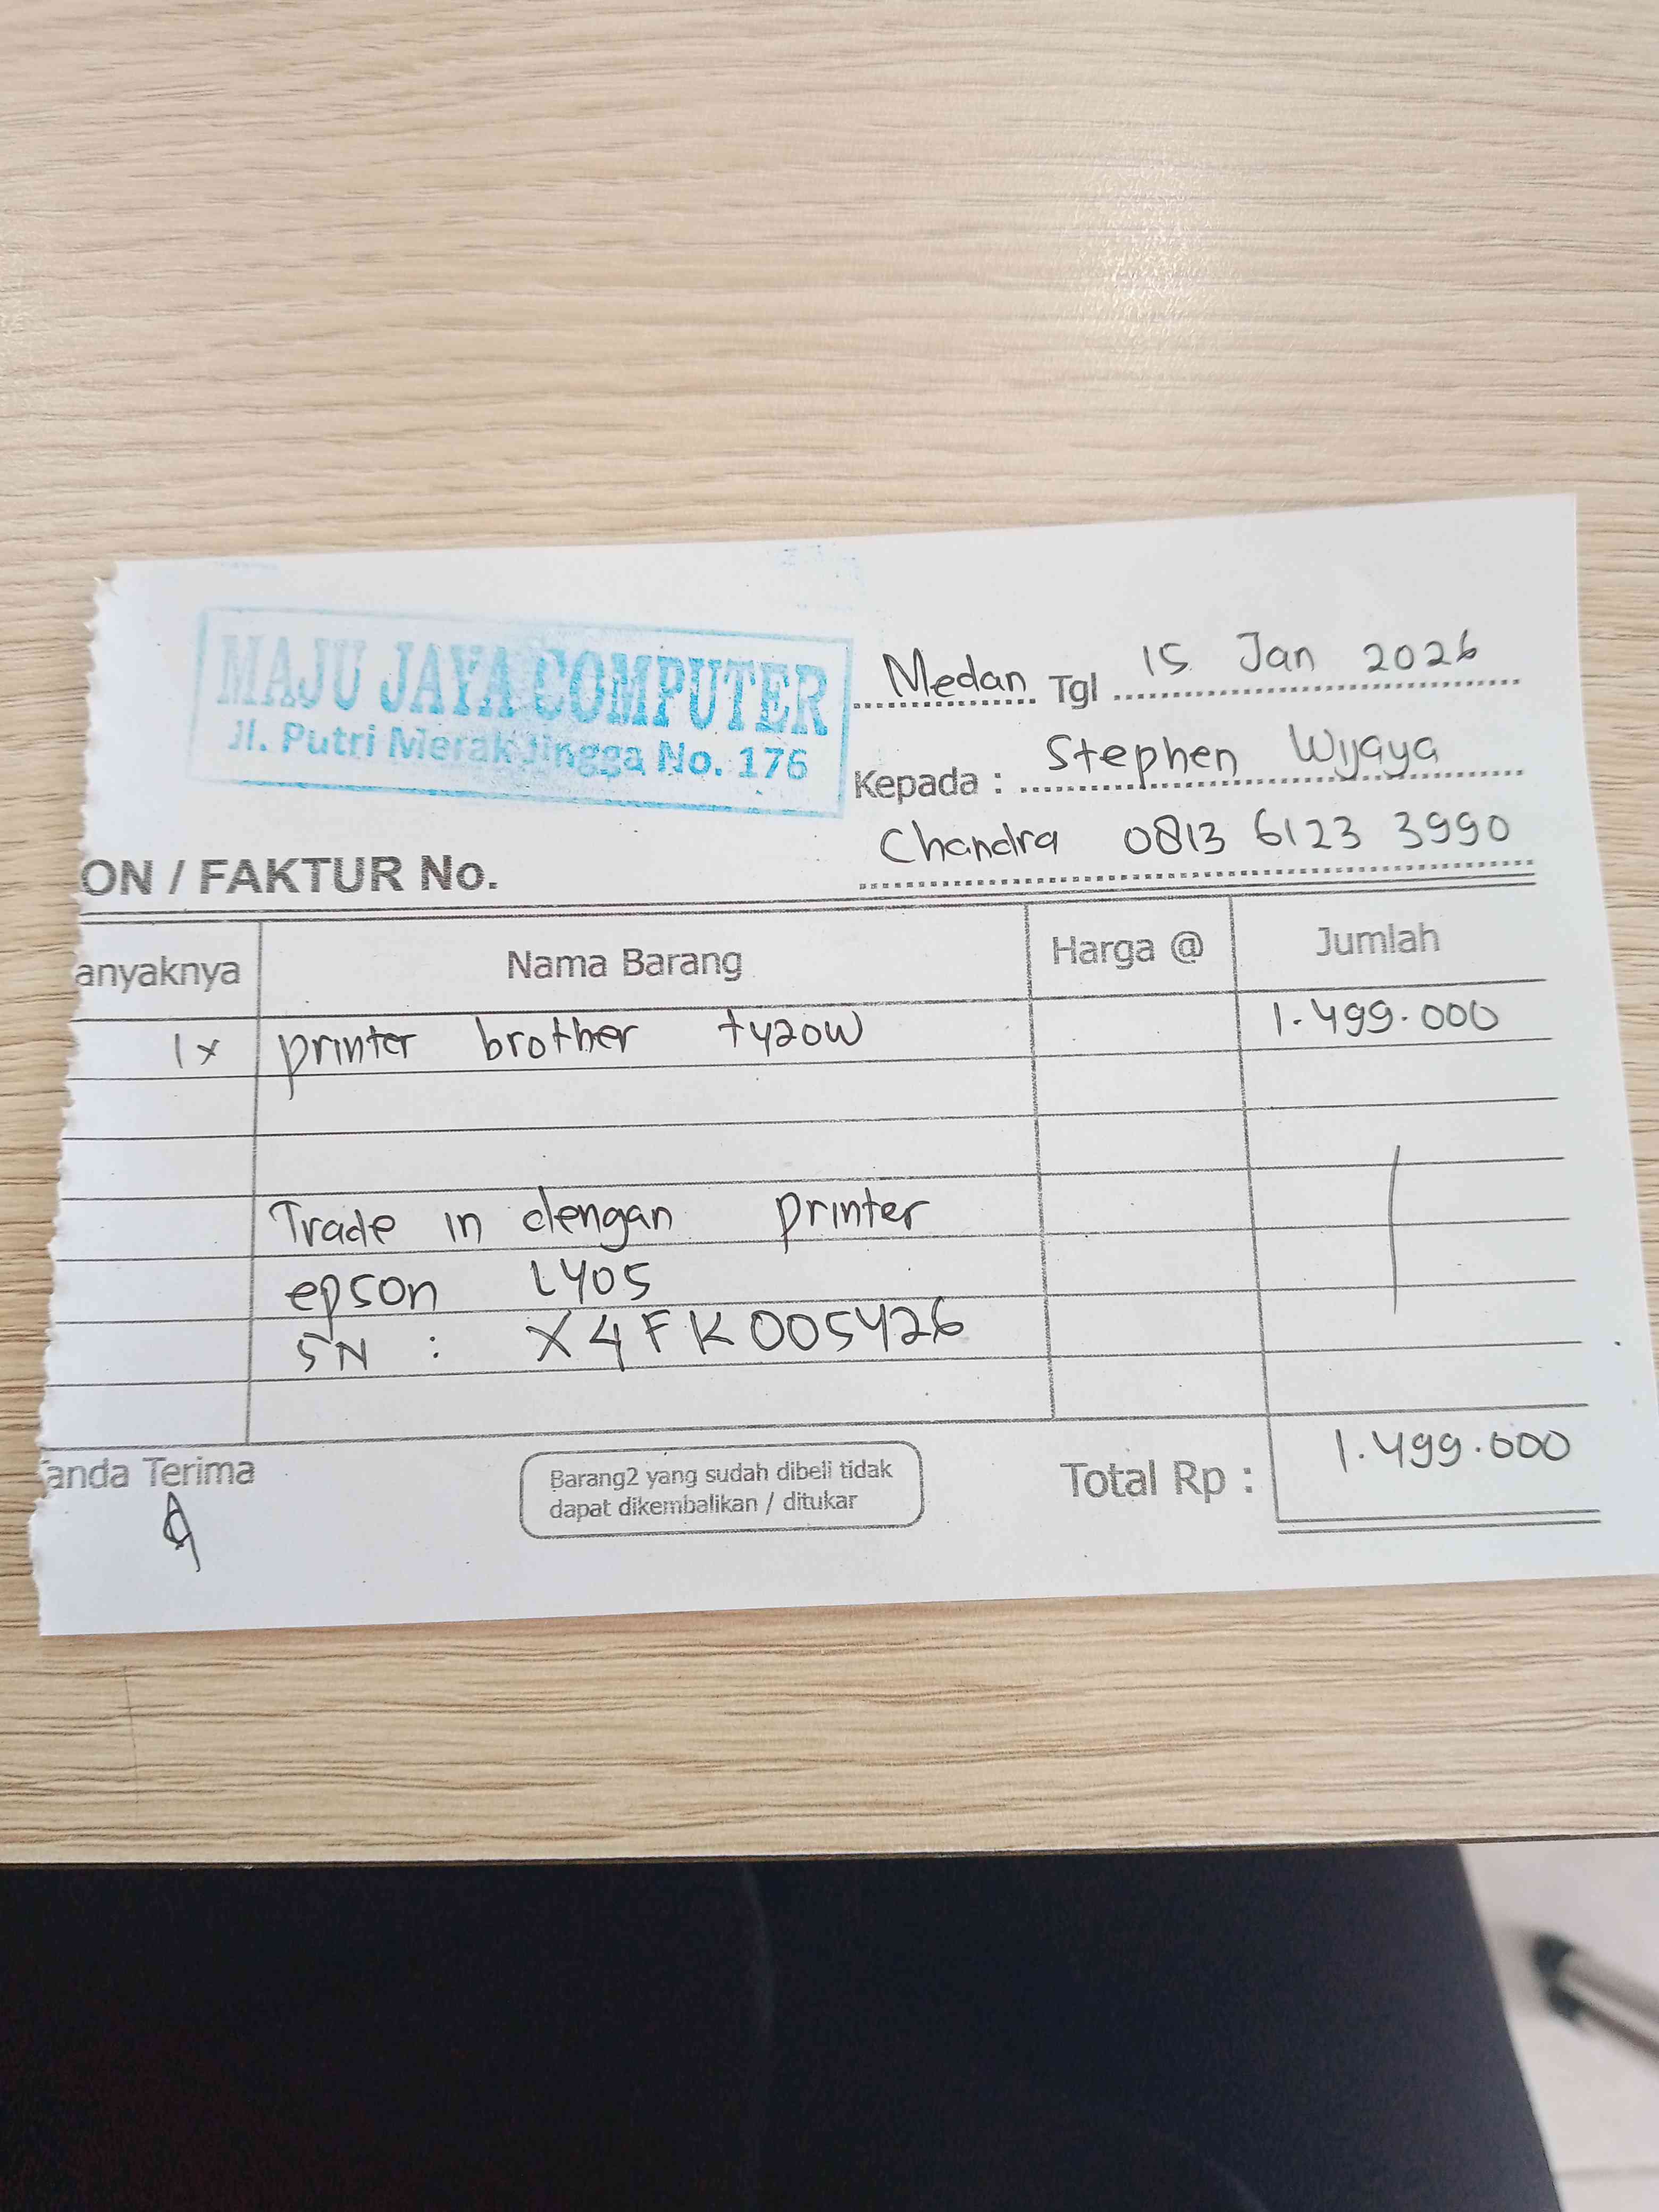 MAJU JAYA COMPUTER
Jl. Putri Merak Jingga No. 176
Medan Tgl 15 Jan 2026
Kepada : Stephen Wijaya
Chandra 0813 6123 3990
ON / FAKTUR No.
anyaknya Nama Barang Harga @ Jumlah
1x printer brother t420W 1.499.000
Trade in dengan printer
epson L405
SN : X4FK005426
anda Terima
Barang2 yang sudah dibeli tidak
dapat dikembalikan / ditukar
Total Rp : 1.499.000